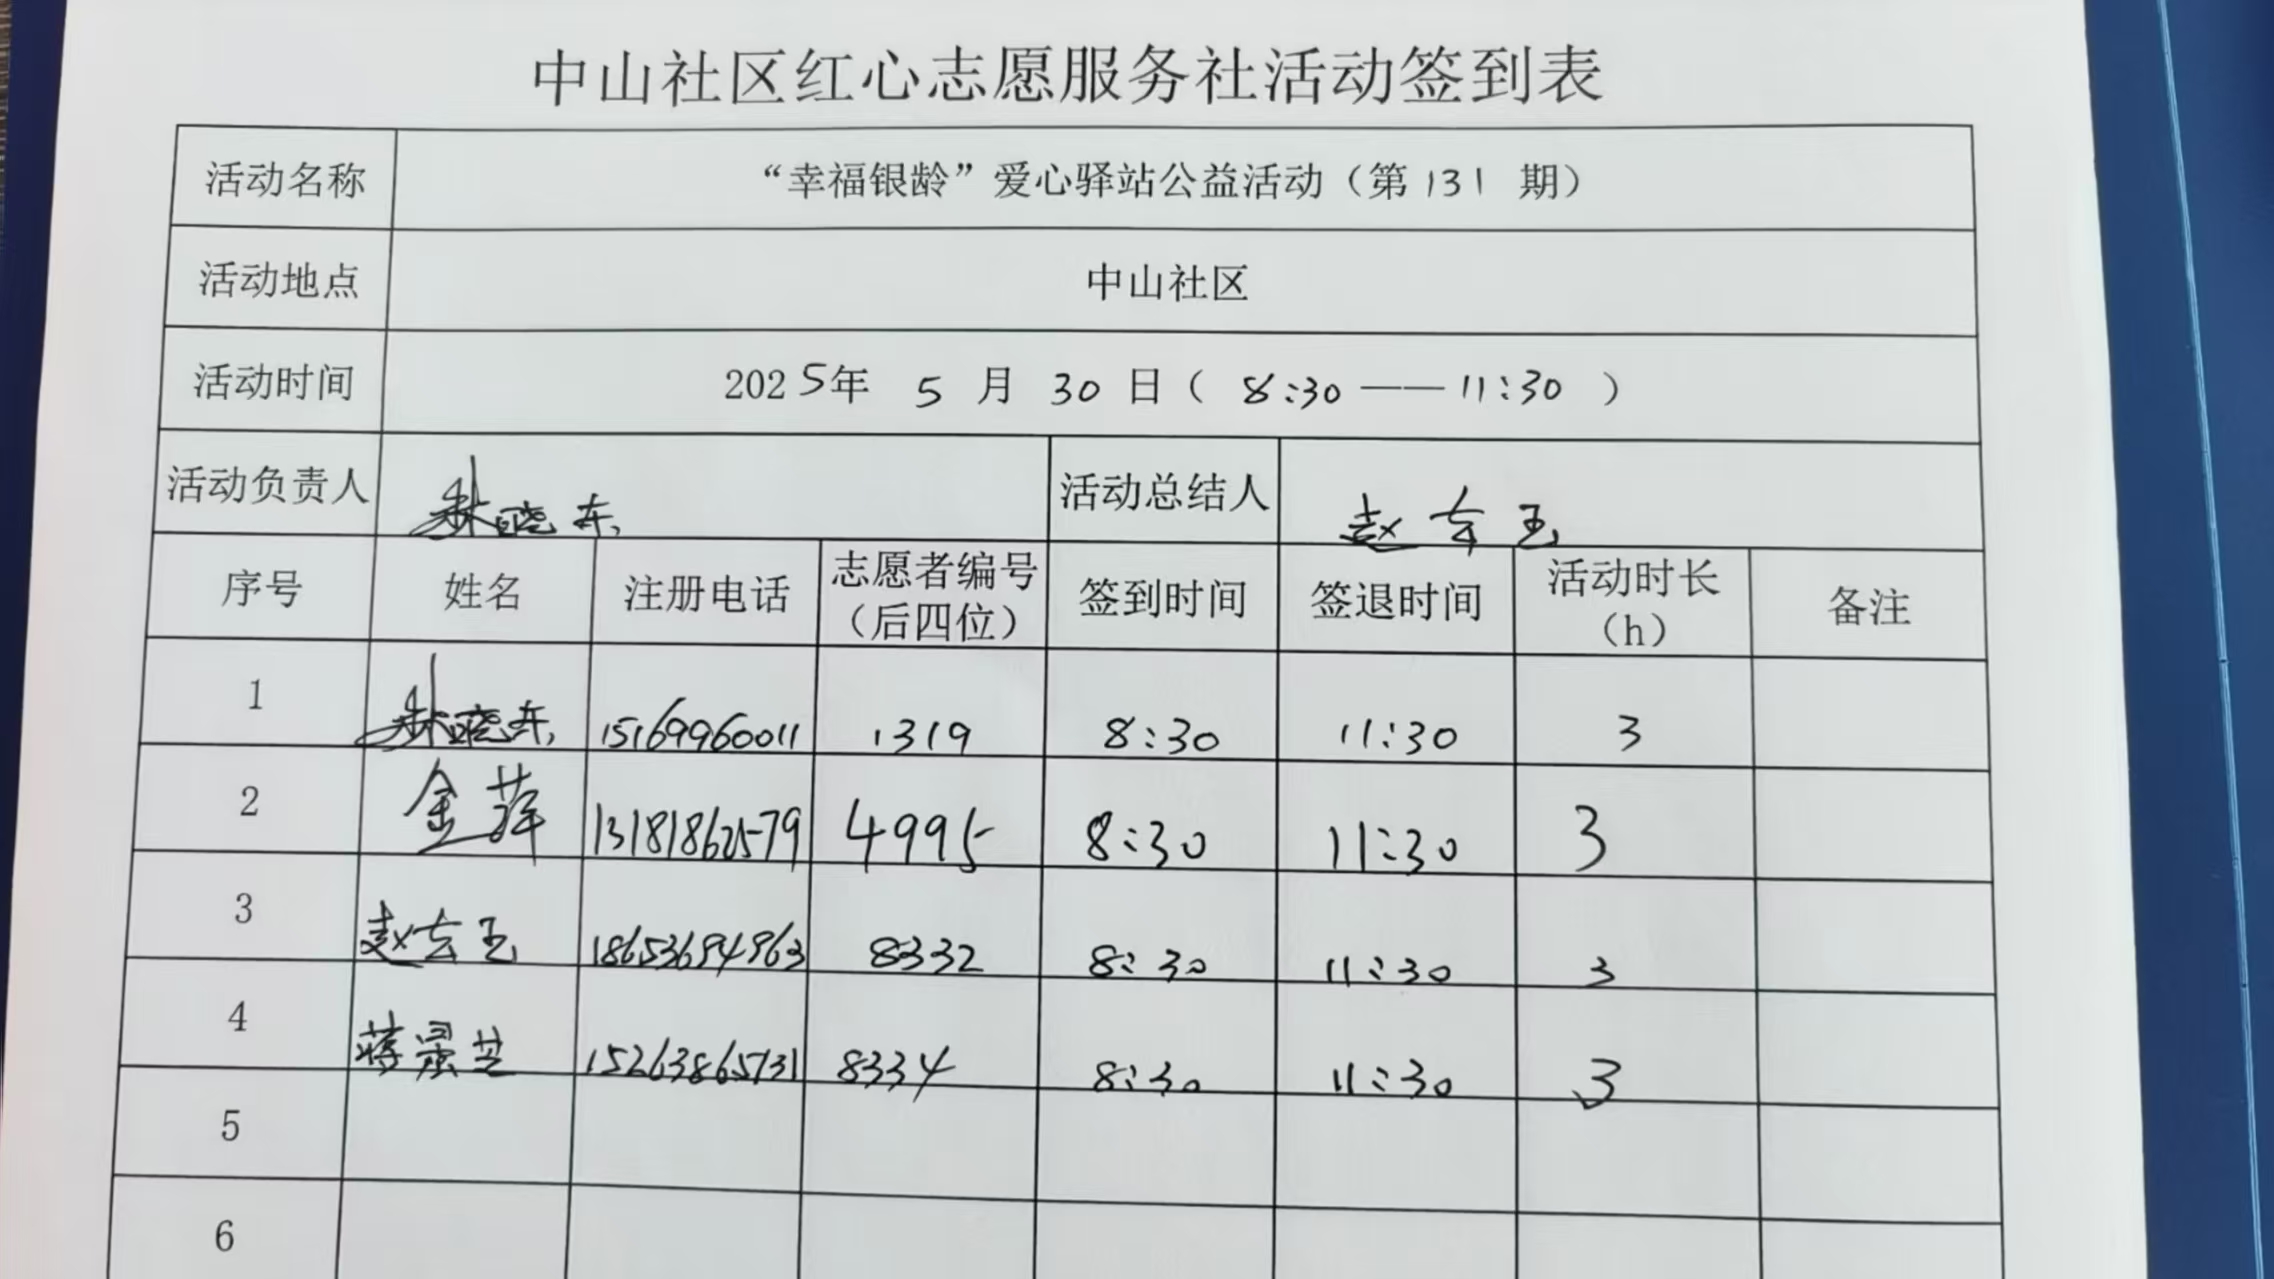 中山社区红心志愿服务社活动签到表
活动名称 “幸福银龄”爱心驿站公益活动（第 131 期）
活动地点 中山社区
活动时间 2025年 5 月 30 日（ 8:30 —— 11:30 ）
活动负责人 林晓东 活动总结人 赵玄玉
序号 姓名 注册电话 志愿者编号（后四位） 签到时间 签退时间 活动时长（h） 备注
1 林晓东 15169960011 1319 8:30 11:30 3
2 金萍 13181862579 4995 8:30 11:30 3
3 赵玄玉 18653694963 8332 8:30 11:30 3
4 蒋景芝 15263865731 8334 8:30 11:30 3
5
6